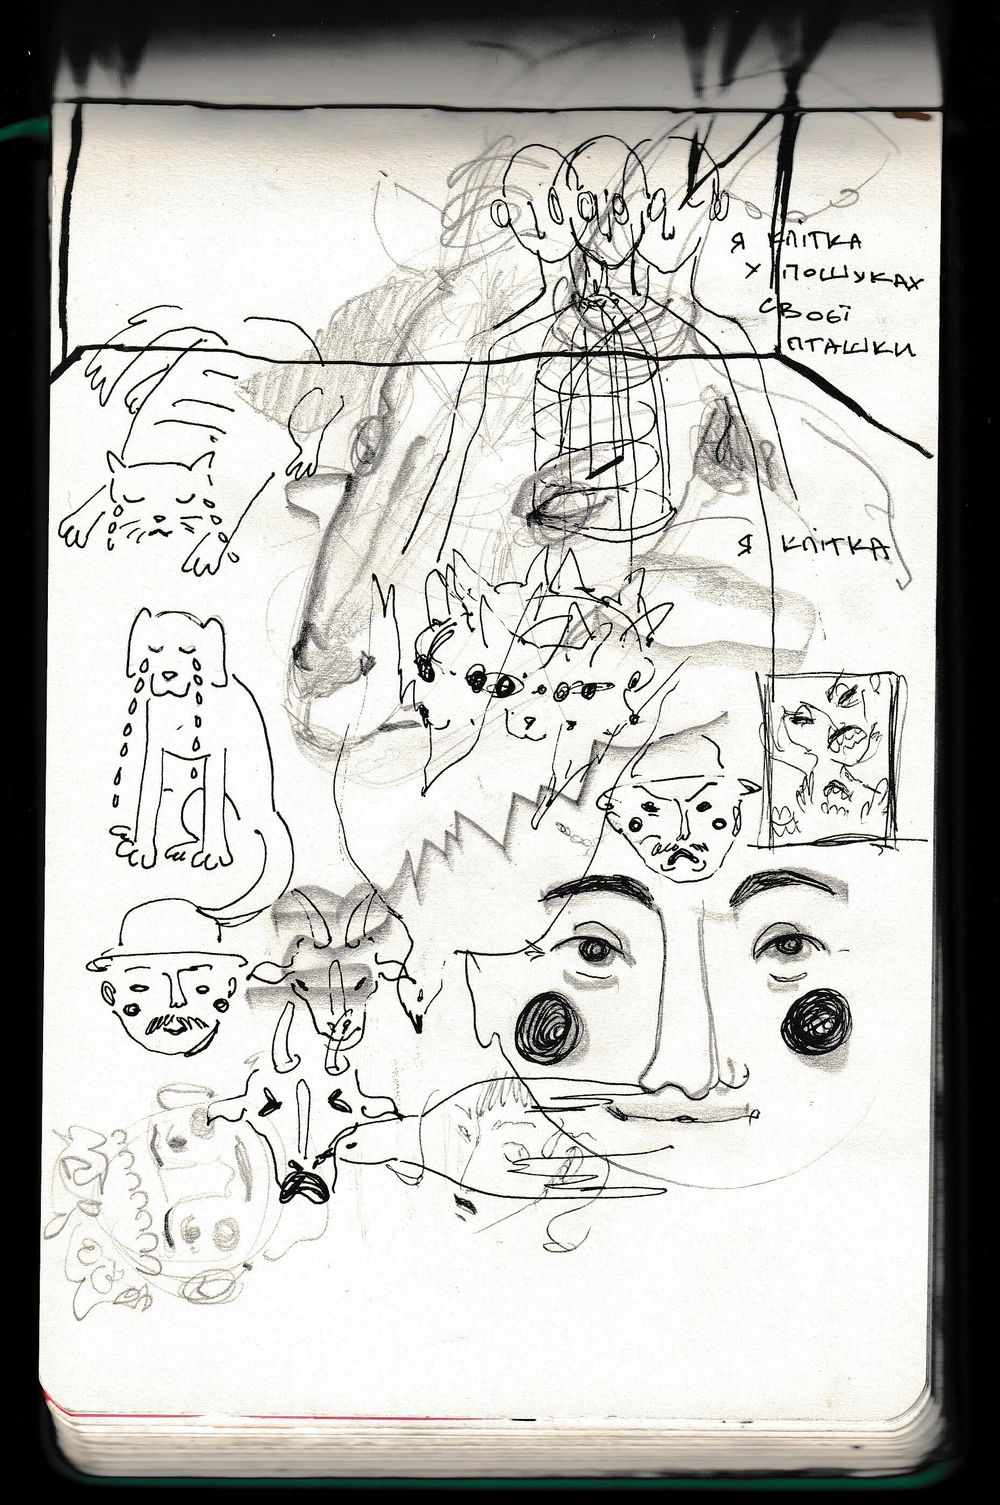 Я КЛІТКА
У ПОШУКАХ
СВОЄЇ
ПТАШКИ
Я КЛІТКА